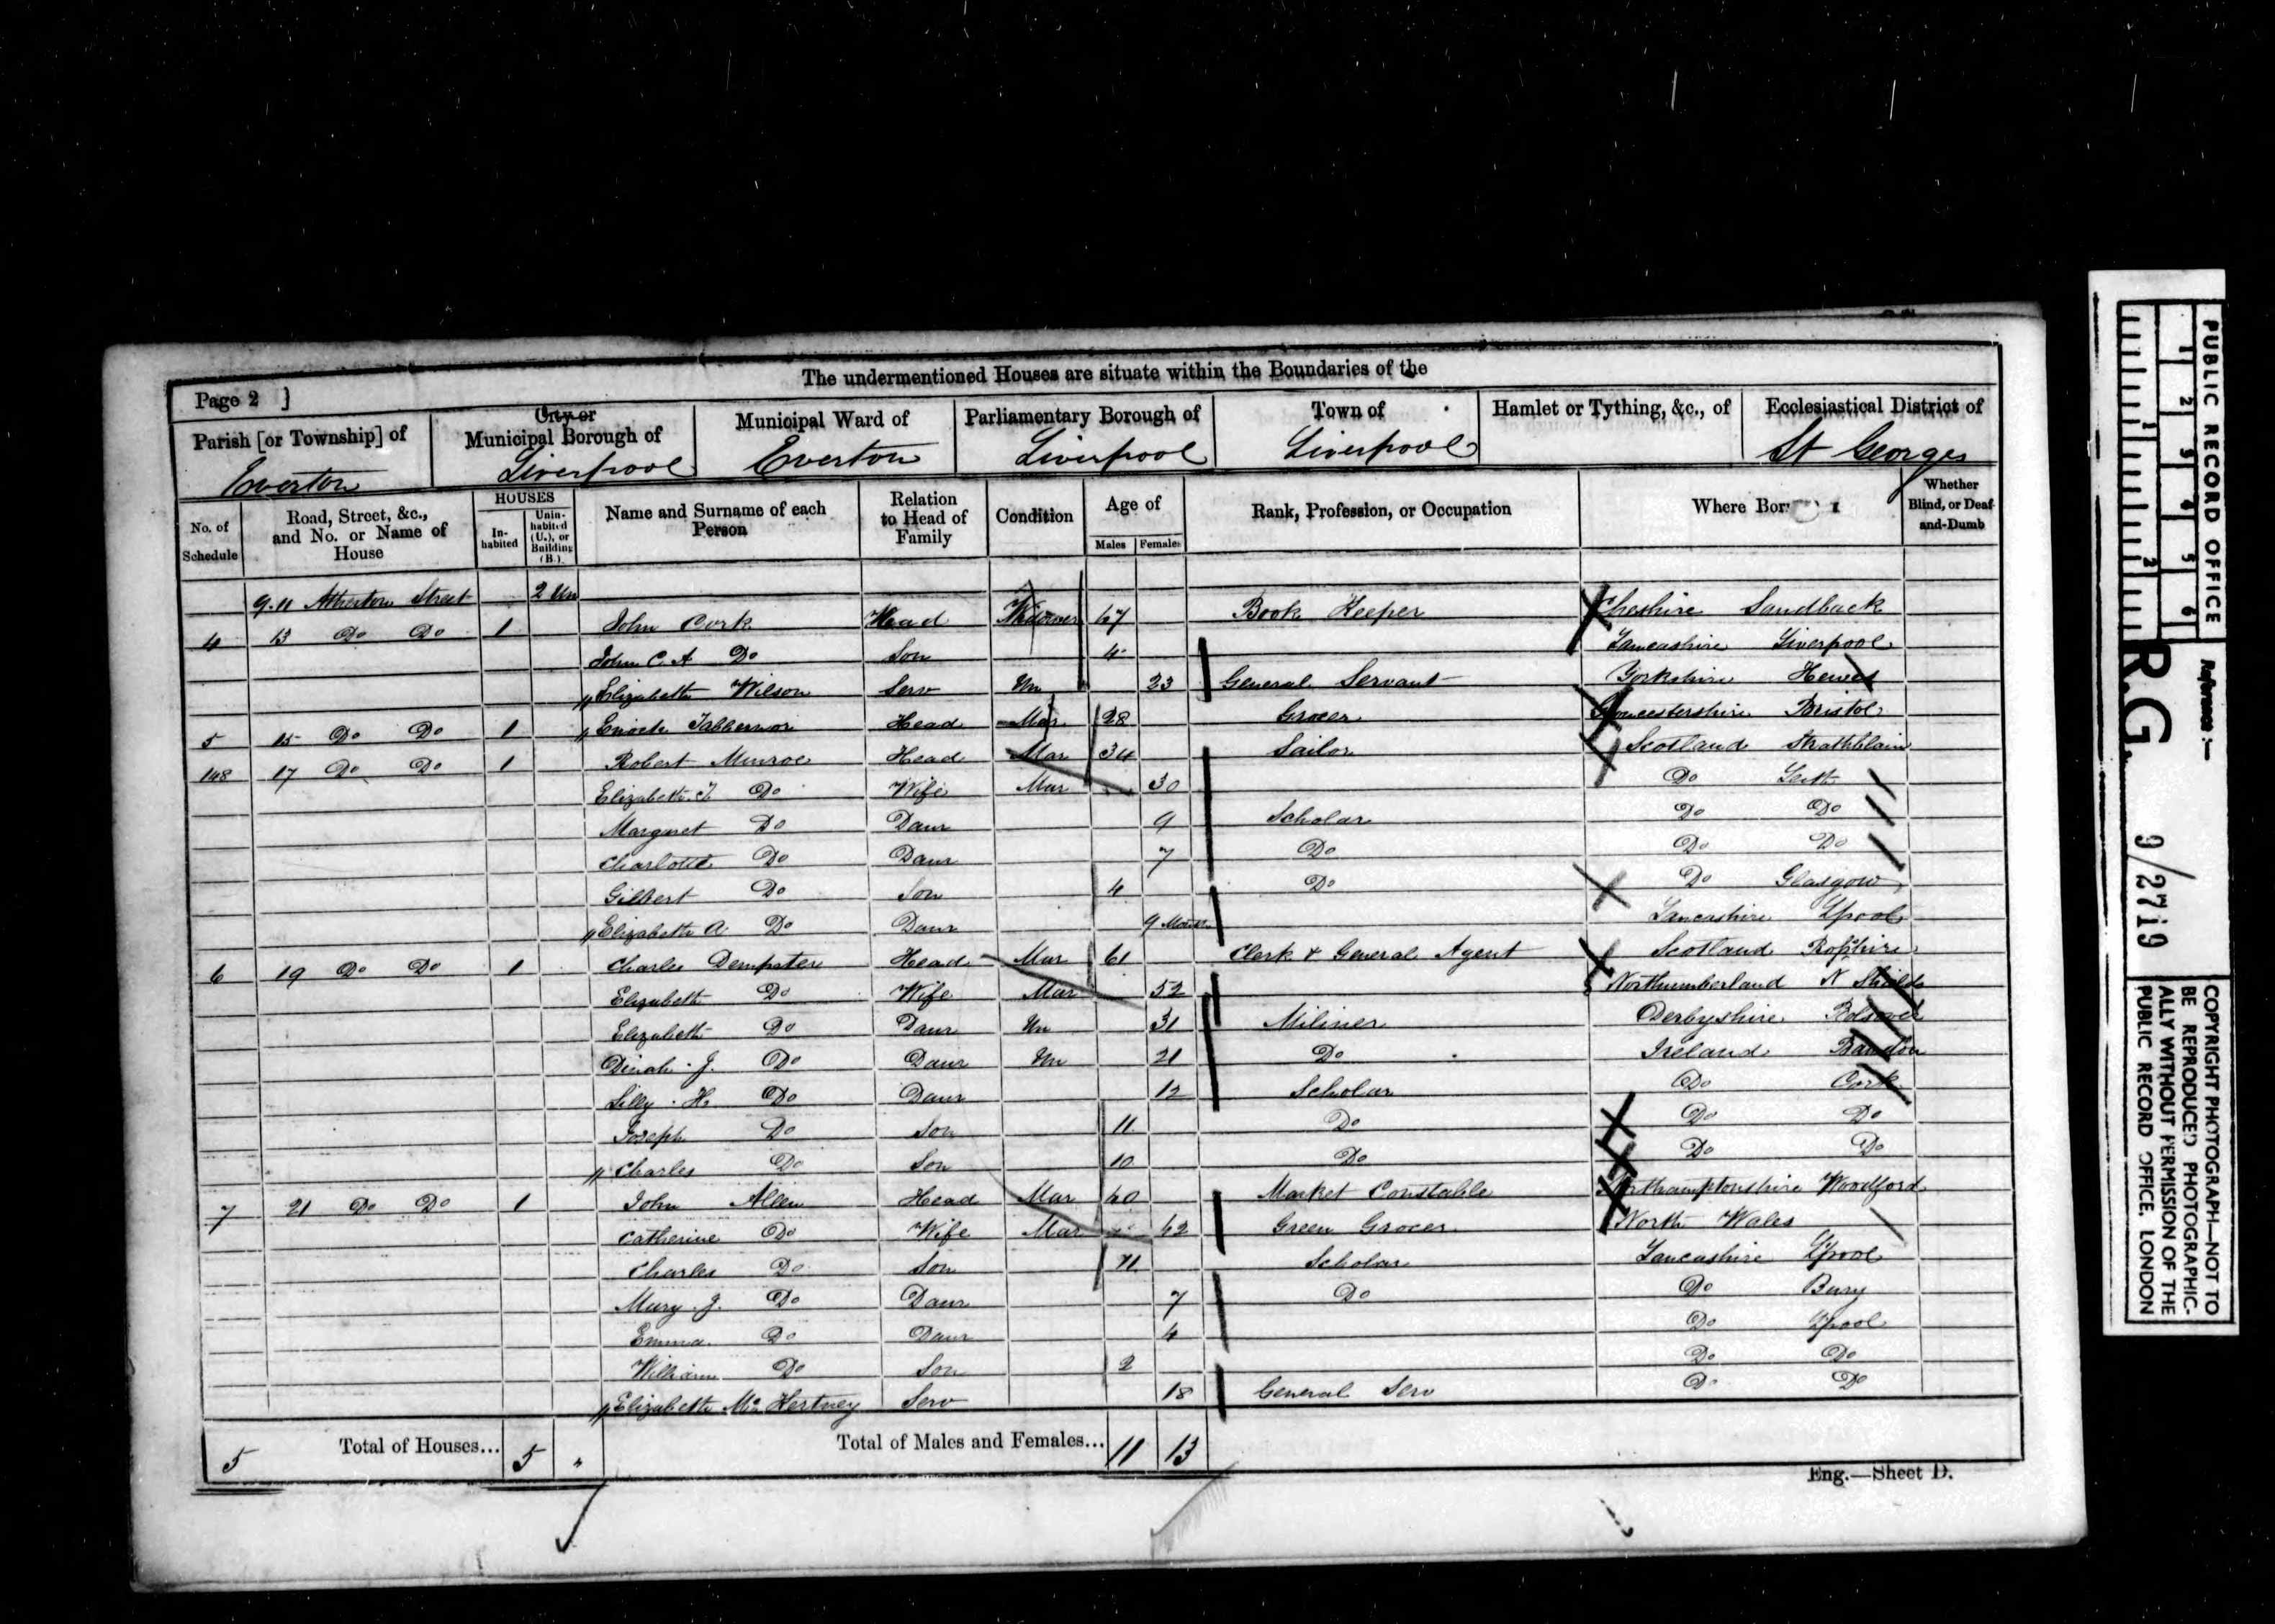 The undermentioned Houses are situate within the Boundaries of the
Page 2 ]
Parish [or Township] of Everton
City or Municipal Borough of Liverpool
Municipal Ward of Everton
Parliamentary Borough of Liverpool
Town of Liverpool
Hamlet or Tything, &c., of
Ecclesiastical District of St Georges
No. of Schedule
Road, Street, &c., and No. or Name of House
HOUSES
In-habited
Unin-habited (U.), or Building (B.)
Name and Surname of each Person
Relation to Head of Family
Condition
Age of
Males
Females
Rank, Profession, or Occupation
Where Born
Whether Blind, or Deaf-and-Dumb
9.11 Atherton Street 2 Un
4 13 Do Do 1 John Cork Head Widower 67 Book Keeper Cheshire Sandback
John C. A Do Son 4 Lancashire Liverpool
Elizabeth Wilson Serv Un 23 General Servant Yorkshire
5 15 Do Do 1 Enoch Head Mar 28 Grocer Gloucestershire Bristol
148 17 Do Do 1 Robert Munroe Head Mar 34 Sailor Scotland Strathblain
Elizabeth Do Wife Mar 30 Do Leith
Margaret Do Daur 9 Scholar Do Do
Charlotte Do Daur 7 Do Do Do
Gilbert Do Son 4 Do Do Glasgow
Elizabeth A. Do Daur 9 Months Lancashire Lpool
6 19 Do Do 1 Charles Dempster Head Mar 61 Clerk & General Agent Scotland Rosshire
Elizabeth Do Wife Mar 52 Northumberland N Shields
Elizabeth Do Daur Un 31 Miliner Derbyshire Bolsover
Dinah . J. Do Daur Un 21 Do Ireland Bandon
Lilly . H. Do Daur 12 Scholar Do Cork
Joseph Do Son 11 Do Do Do
Charles Do Son 10 Do Do Do
7 21 Do Do 1 John Allen Head Mar 60 Market Constable Northamptonshire Woodford
Catherine Do Wife Mar 42 Green Grocer North Wales
Charles Do Son 11 Scholar Lancashire Lpool
Mary . J. Do Daur 7 Do Do Bury
Emma Do Daur 4 Do Lpool
William Do Son 2 Do Do
Elizabeth Mc Hertney Serv 18 General Serv Do Do
5 Total of Houses... 5 " Total of Males and Females... 11 13
Eng.—Sheet D.
PUBLIC RECORD OFFICE
1 2 3 4 5 6
1 2
Reference :—
R.G. 9/2719
COPYRIGHT PHOTOGRAPH—NOT TO
BE REPRODUCED PHOTOGRAPHIC-
ALLY WITHOUT PERMISSION OF THE
PUBLIC RECORD OFFICE, LONDON